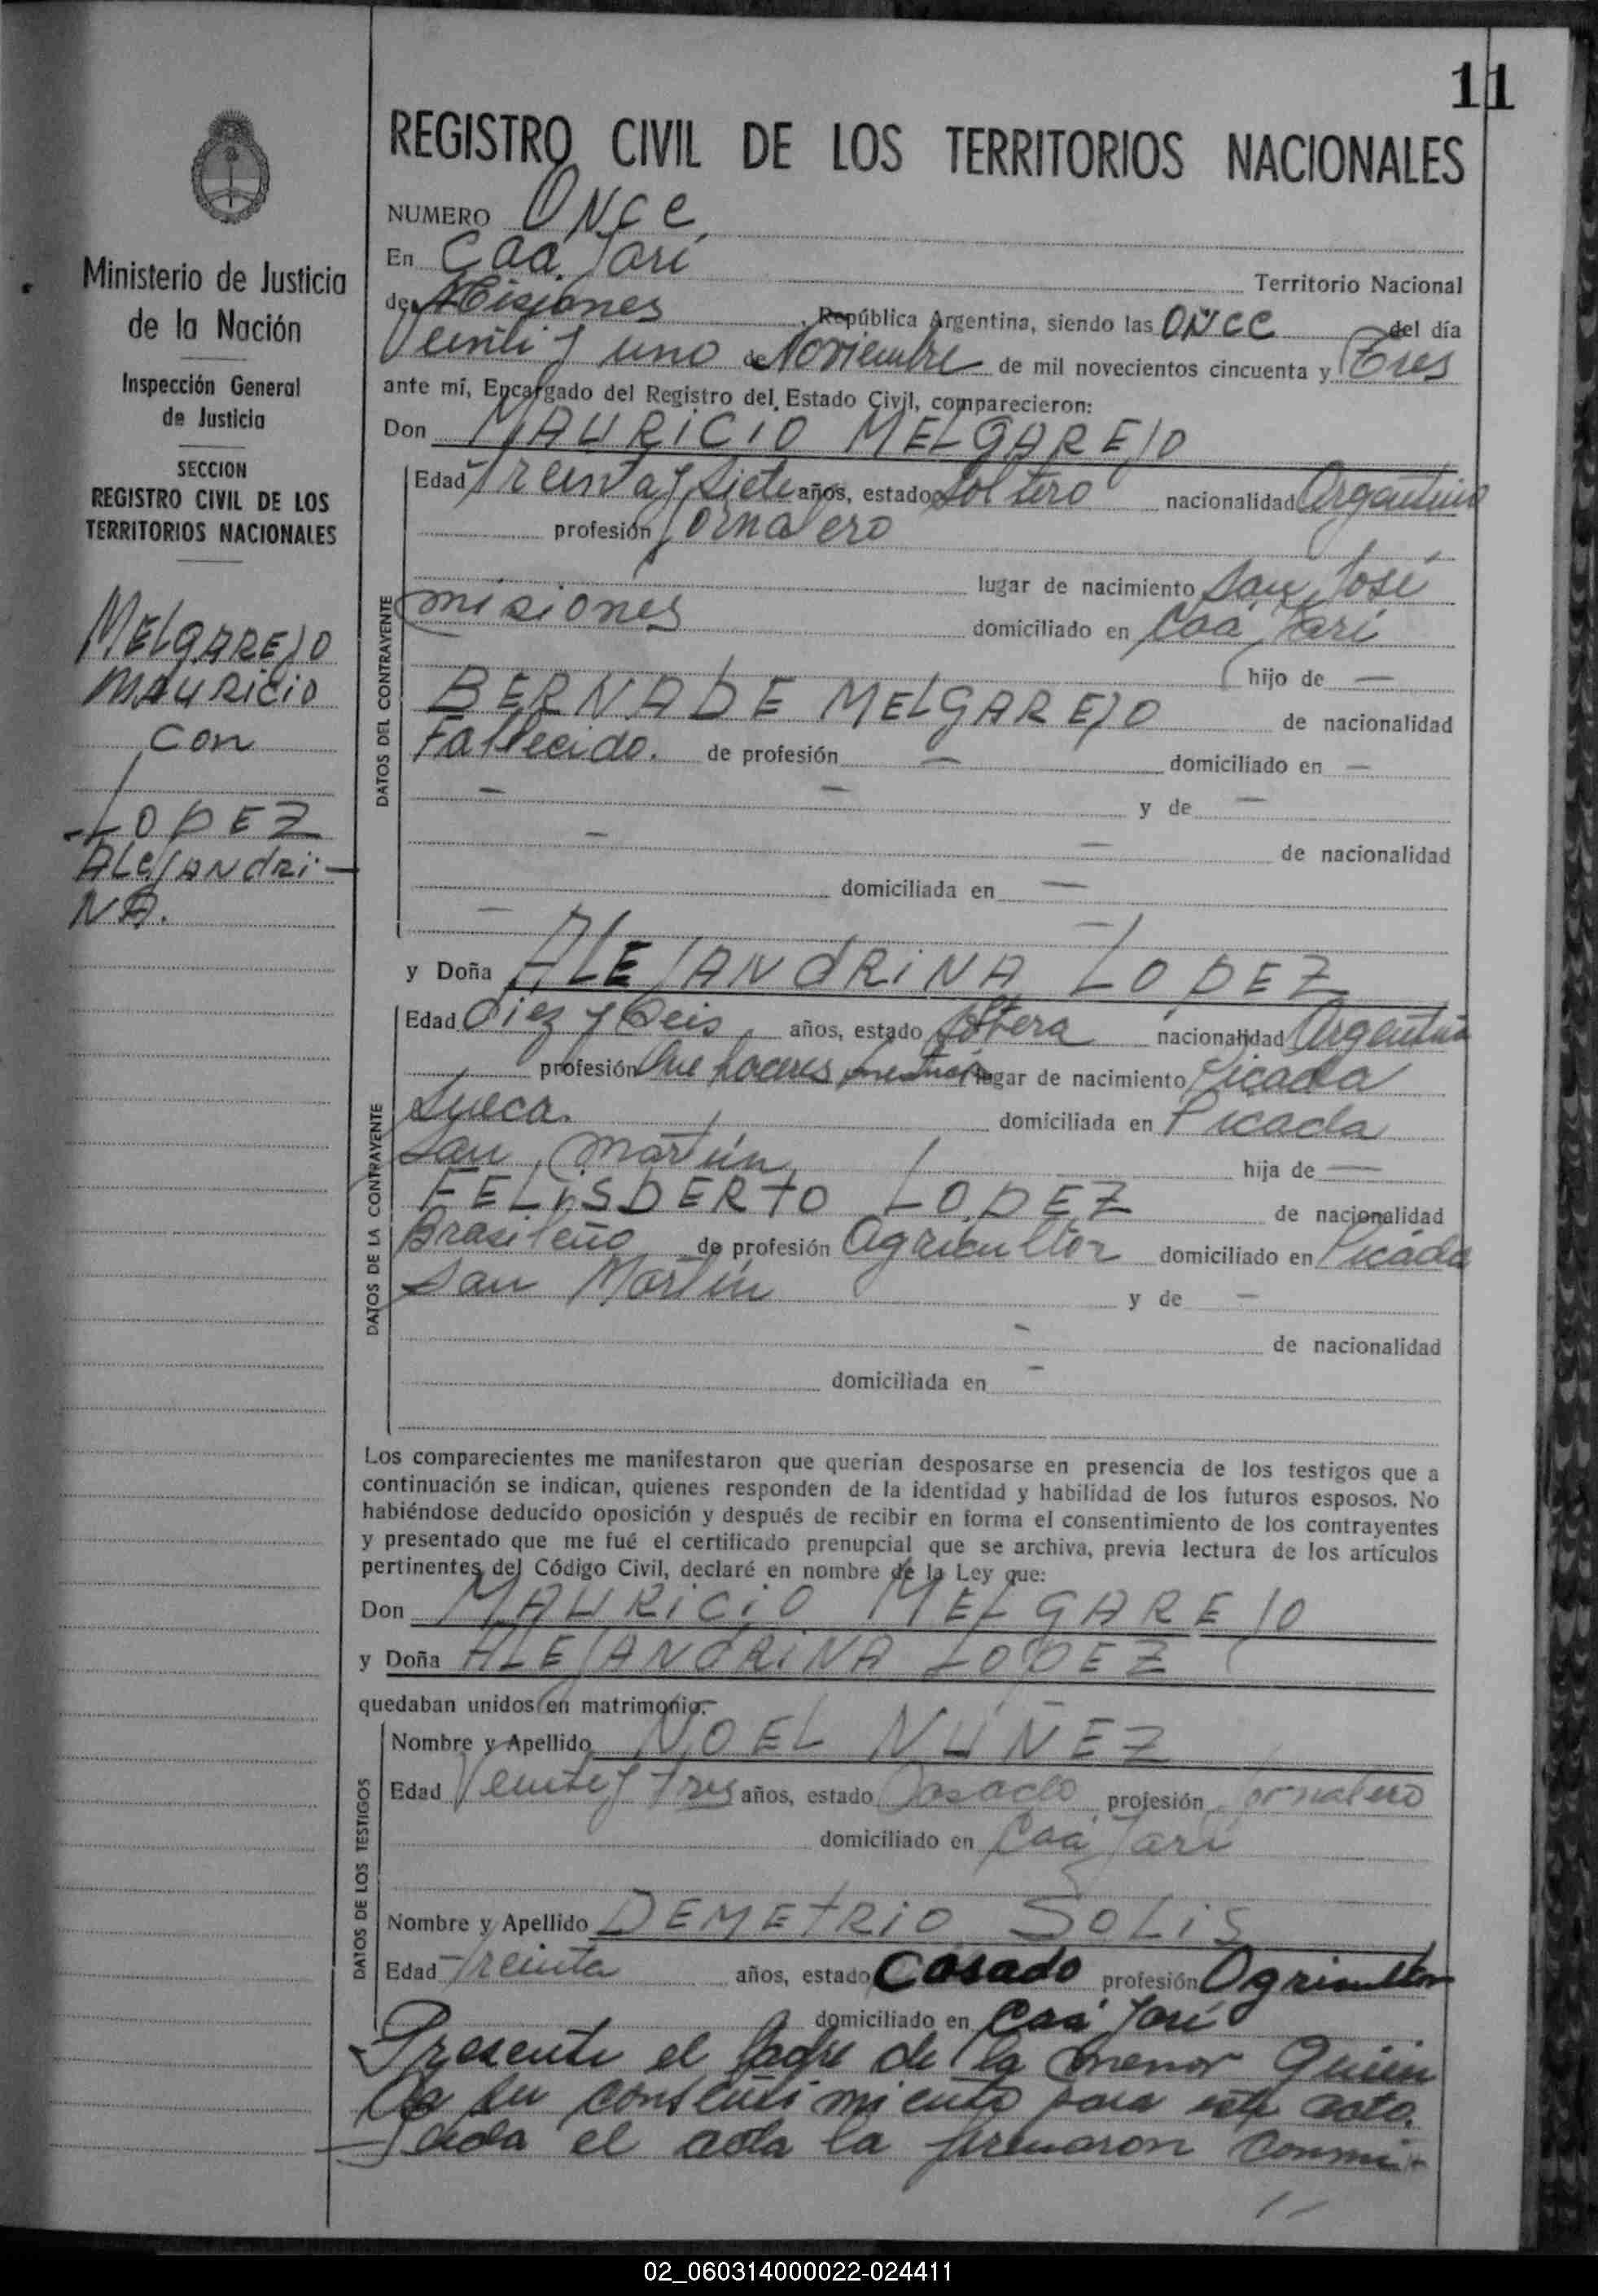 11
REGISTRO CIVIL DE LOS TERRITORIOS NACIONALES
Ministerio de Justicia
de la Nación
Inspección General
de Justicia
SECCION
REGISTRO CIVIL DE LOS
TERRITORIOS NACIONALES
MELGAREJO
MAURICIO
Con
LOPEZ
ALEJANDRI-
NA.
NUMERO ONCE
En Caá Yarí Territorio Nacional
de Misiones, República Argentina, siendo las ONCE del día
Veinti y uno de Noviembre de mil novecientos cincuenta y Tres
ante mí, Encargado del Registro del Estado Civil, comparecieron:
Don MAURICIO MELGAREJO
DATOS DEL CONTRAYENTE
Edad Treinta y Siete años, estado Soltero nacionalidad Argentino
profesión Jornalero
lugar de nacimiento San José
Misiones domiciliado en Caá Yarí
hijo de —
BERNADE MELGAREJO de nacionalidad
Fallecido. de profesión — domiciliado en —
— — y de —
— — de nacionalidad
domiciliada en —
— —
y Doña ALEJANDRINA LOPEZ
DATOS DE LA CONTRAYENTE
Edad Diez y Seis años, estado Soltera nacionalidad Argentina
profesión Que haceres lugar de nacimiento Picada
Sueca. domiciliada en Picada
San Martín hija de —
FELISBERTO LOPEZ de nacionalidad
Brasileño de profesión Agricultor domiciliado en Picada
San Martín y de —
- de nacionalidad
domiciliada en -
Los comparecientes me manifestaron que querían desposarse en presencia de los testigos que a
continuación se indican, quienes responden de la identidad y habilidad de los futuros esposos. No
habiéndose deducido oposición y después de recibir en forma el consentimiento de los contrayentes
y presentado que me fué el certificado prenupcial que se archiva, previa lectura de los artículos
pertinentes del Código Civil, declaré en nombre de la Ley que:
Don MAURICIO MELGAREJO
y Doña ALEJANDRINA LOPEZ
quedaban unidos en matrimonio.-
DATOS DE LOS TESTIGOS
Nombre y Apellido NOEL NUÑEZ
Edad Veinte y Tres años, estado Casado profesión Jornalero
domiciliado en Caá Yarí
Nombre y Apellido DEMETRIO SOLIS
Edad Treinta años, estado Casado profesión Agricultor
domiciliado en Caá Yarí
Presente el Padre de la menor Quien
da su consentimiento para este acto.
Leida el acta la firmaron Conmi-
02_060314000022-024411